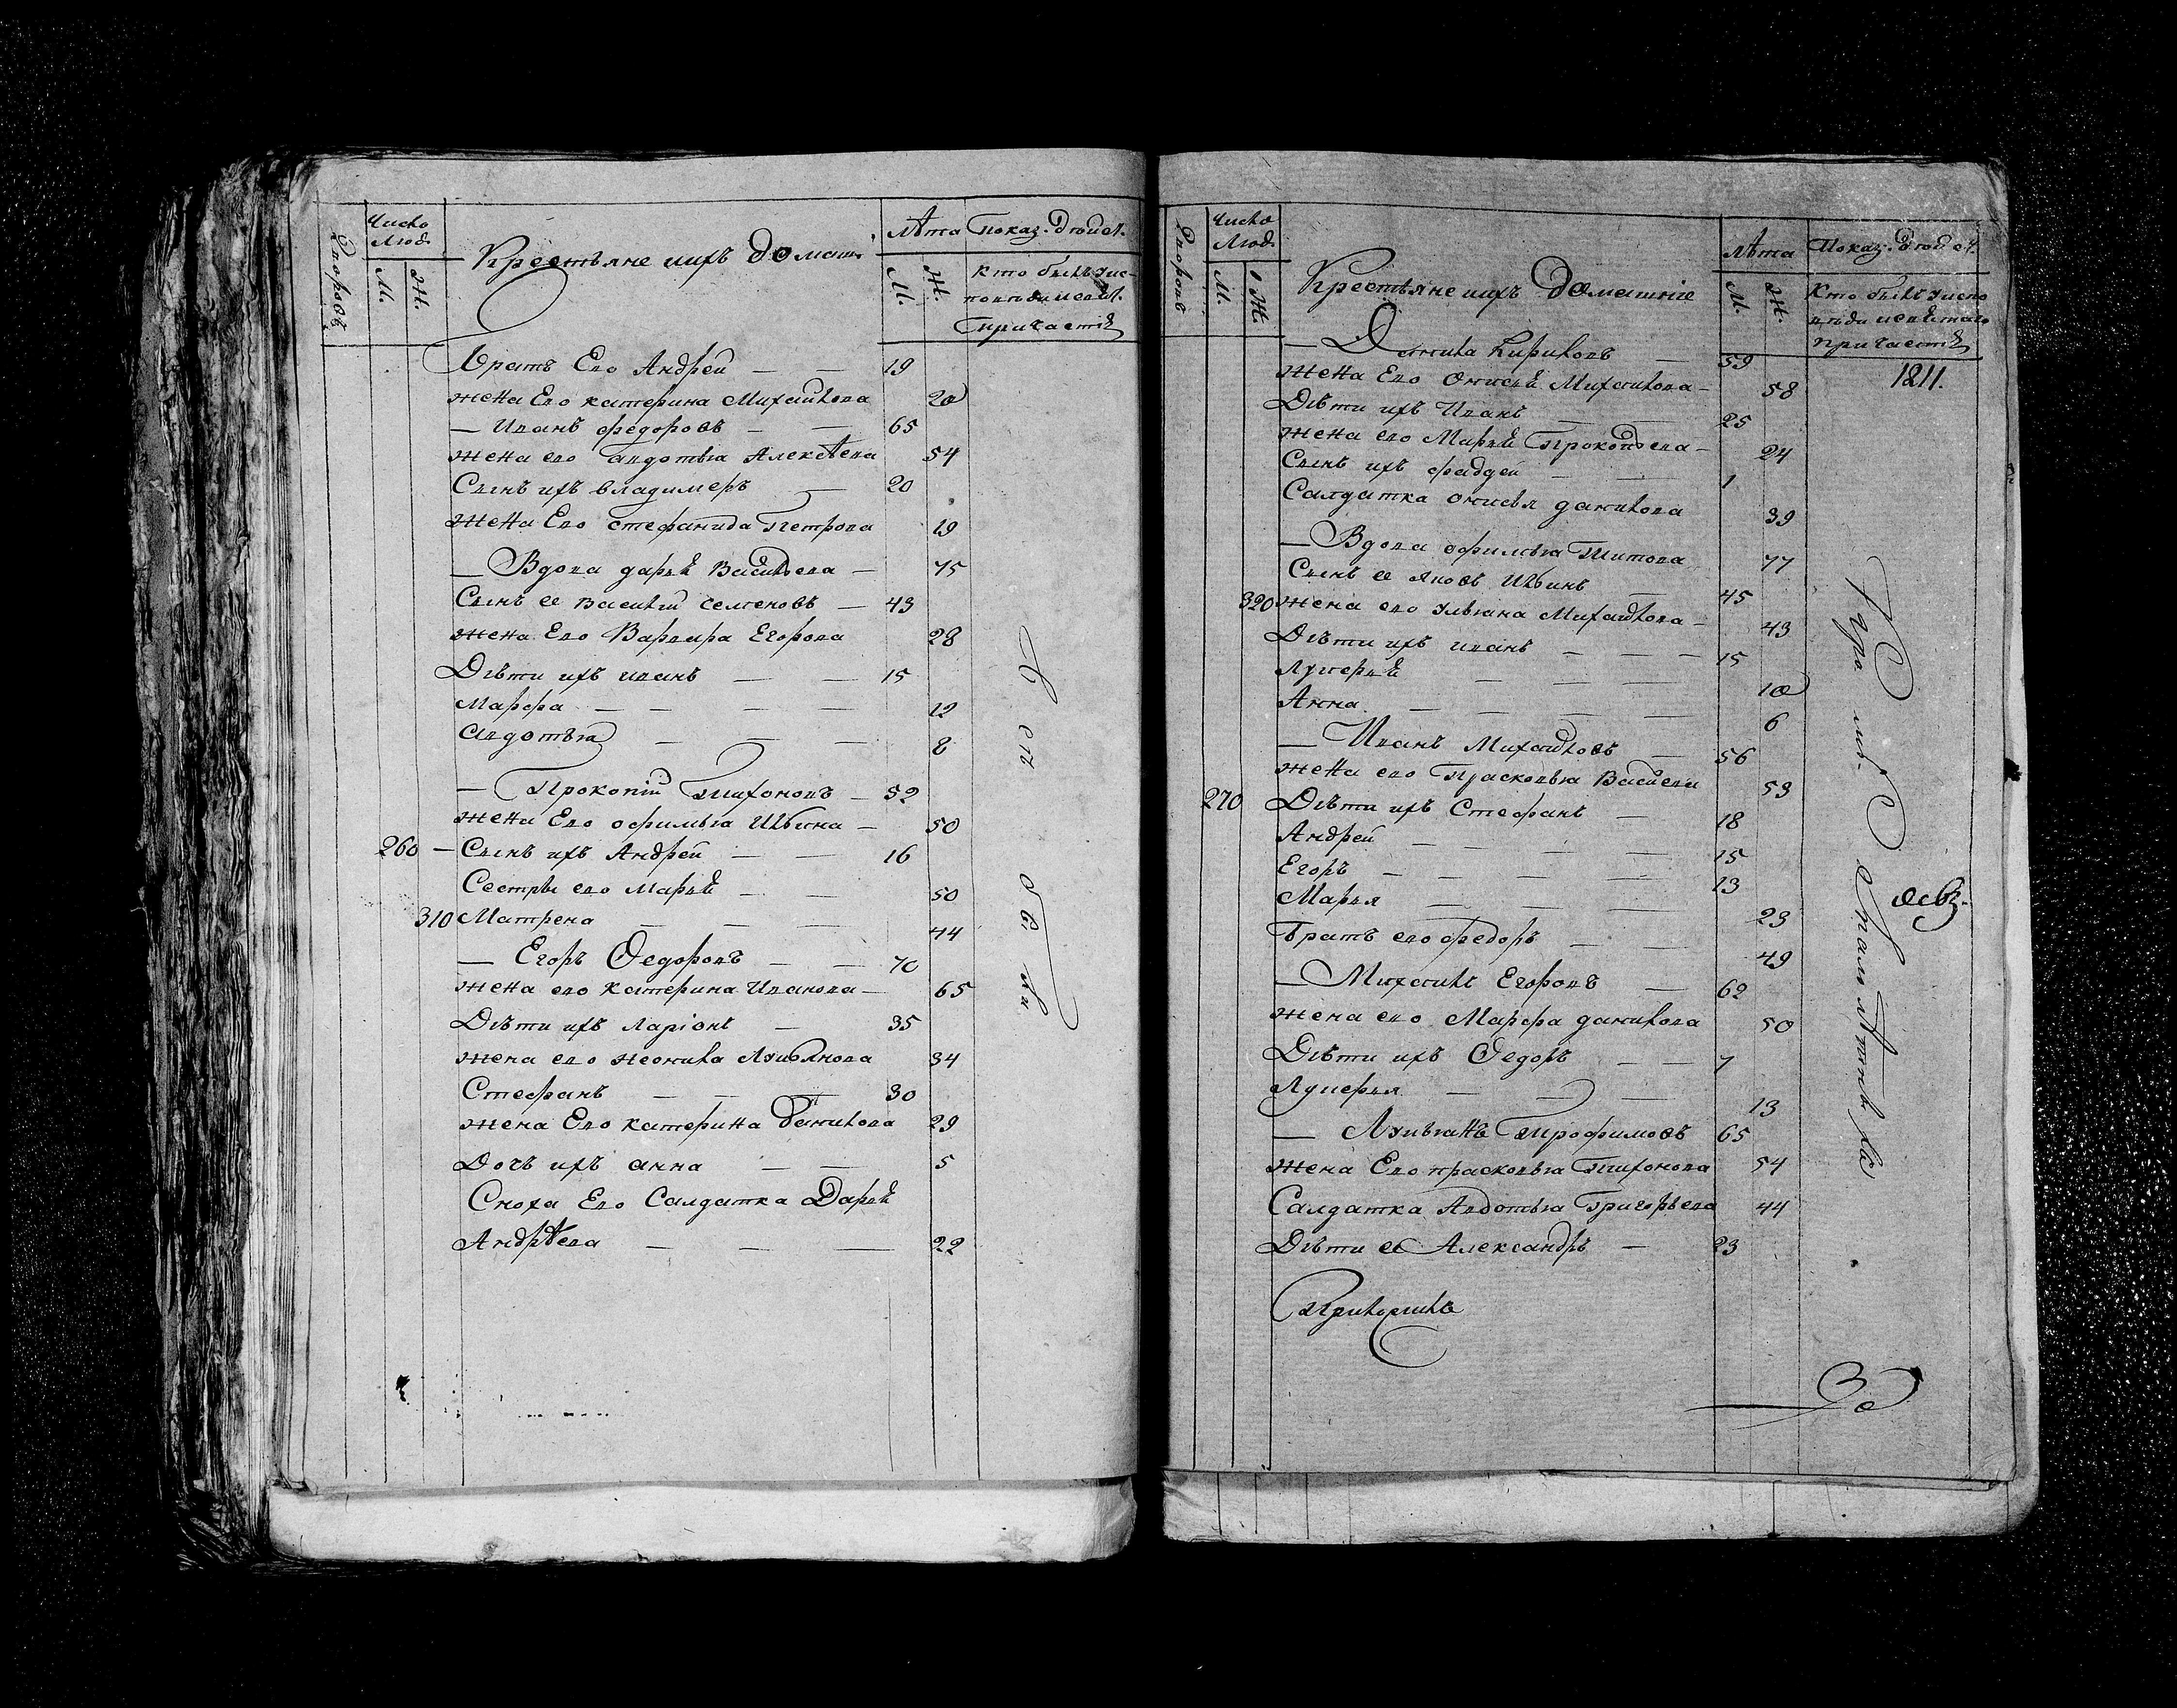 Дворовъ
Число Люд.
М.
Ж.
Крестьяне ихъ домаш.
Лѣта
М.
Ж.
Показ. Дѣист.
Кто былъ у ис-
повѣди и свят.
причастія
Братъ Его Андрей — — 19
жена Его катерина Михаилова 20
— Иванъ федоровъ — — 65
жена его авдотья Алексѣева 54
Сынъ ихъ владимеръ — 20
жена Его стефанида Петрова 19
— Вдова дарья Васильева — 75
Сынъ ее василий семеновъ — 43
жена Его Варвара Егорова 28
Дѣти ихъ иванъ — — 15
Марфа — — — — 12
авдотья — — — 8
— Прокопій Тихоновъ — 52
жена Его офимья Ильина — 50
260 — Сынъ ихъ Андрей — — 16
Сестры его Марья — — 50
310 Матрена — — — 44
— Егоръ Ѳедоровъ — — 70
жена его катерина Иванова — 65
Дѣти ихъ Ларіонъ — 35
жена его неонила Лукьянова 34
Стефанъ — — — 30
жена Его катерина данилова 29
Дочь ихъ анна — — 5
Сноха Его Салдатка Дарья
Андрѣева — — — 22
Дворовъ
Число Люд.
М.
Ж.
Крестьяне ихъ Домашніе
Лѣта
М.
Ж.
Показ. Дѣист.
Кто былъ у испо
вѣди и святаго
причастія
— Данила Кириловъ — 59
1811.
жена Его Онисья Михаилова — 58
Дѣти ихъ Иванъ — — 25
жена его Марья Прокопьева — 24
Сынъ ихъ фаддей — — 1
Салдатка онисья данилова 39
— Вдова офимья Титова 77
Сынъ ее яковъ Ильинъ — 45
320 жена его ульяна Михаилова — 43
Дѣти ихъ иванъ — — — 15
Лукерья — — — 10
Анна — — — — 6
— Иванъ Михаиловъ — 56
жена его Прасковья Васильева 53
270 Дѣти ихъ Стефанъ — 18
Андрей — — — — 15
Егоръ — — — — 13
Марья — — — 23
Братъ его федоръ — — 49
— Михаилъ Егоровъ — 62
жена его Марфа данилова 50
Дѣти ихъ Ѳедоръ — — 7
Лукерья — — — 13
— Лукьянъ Трофимовъ 65
жена Его прасковья Тихонова 54
Салдатка Авдотья Григорьева 44
Дѣти ее Александръ — 23